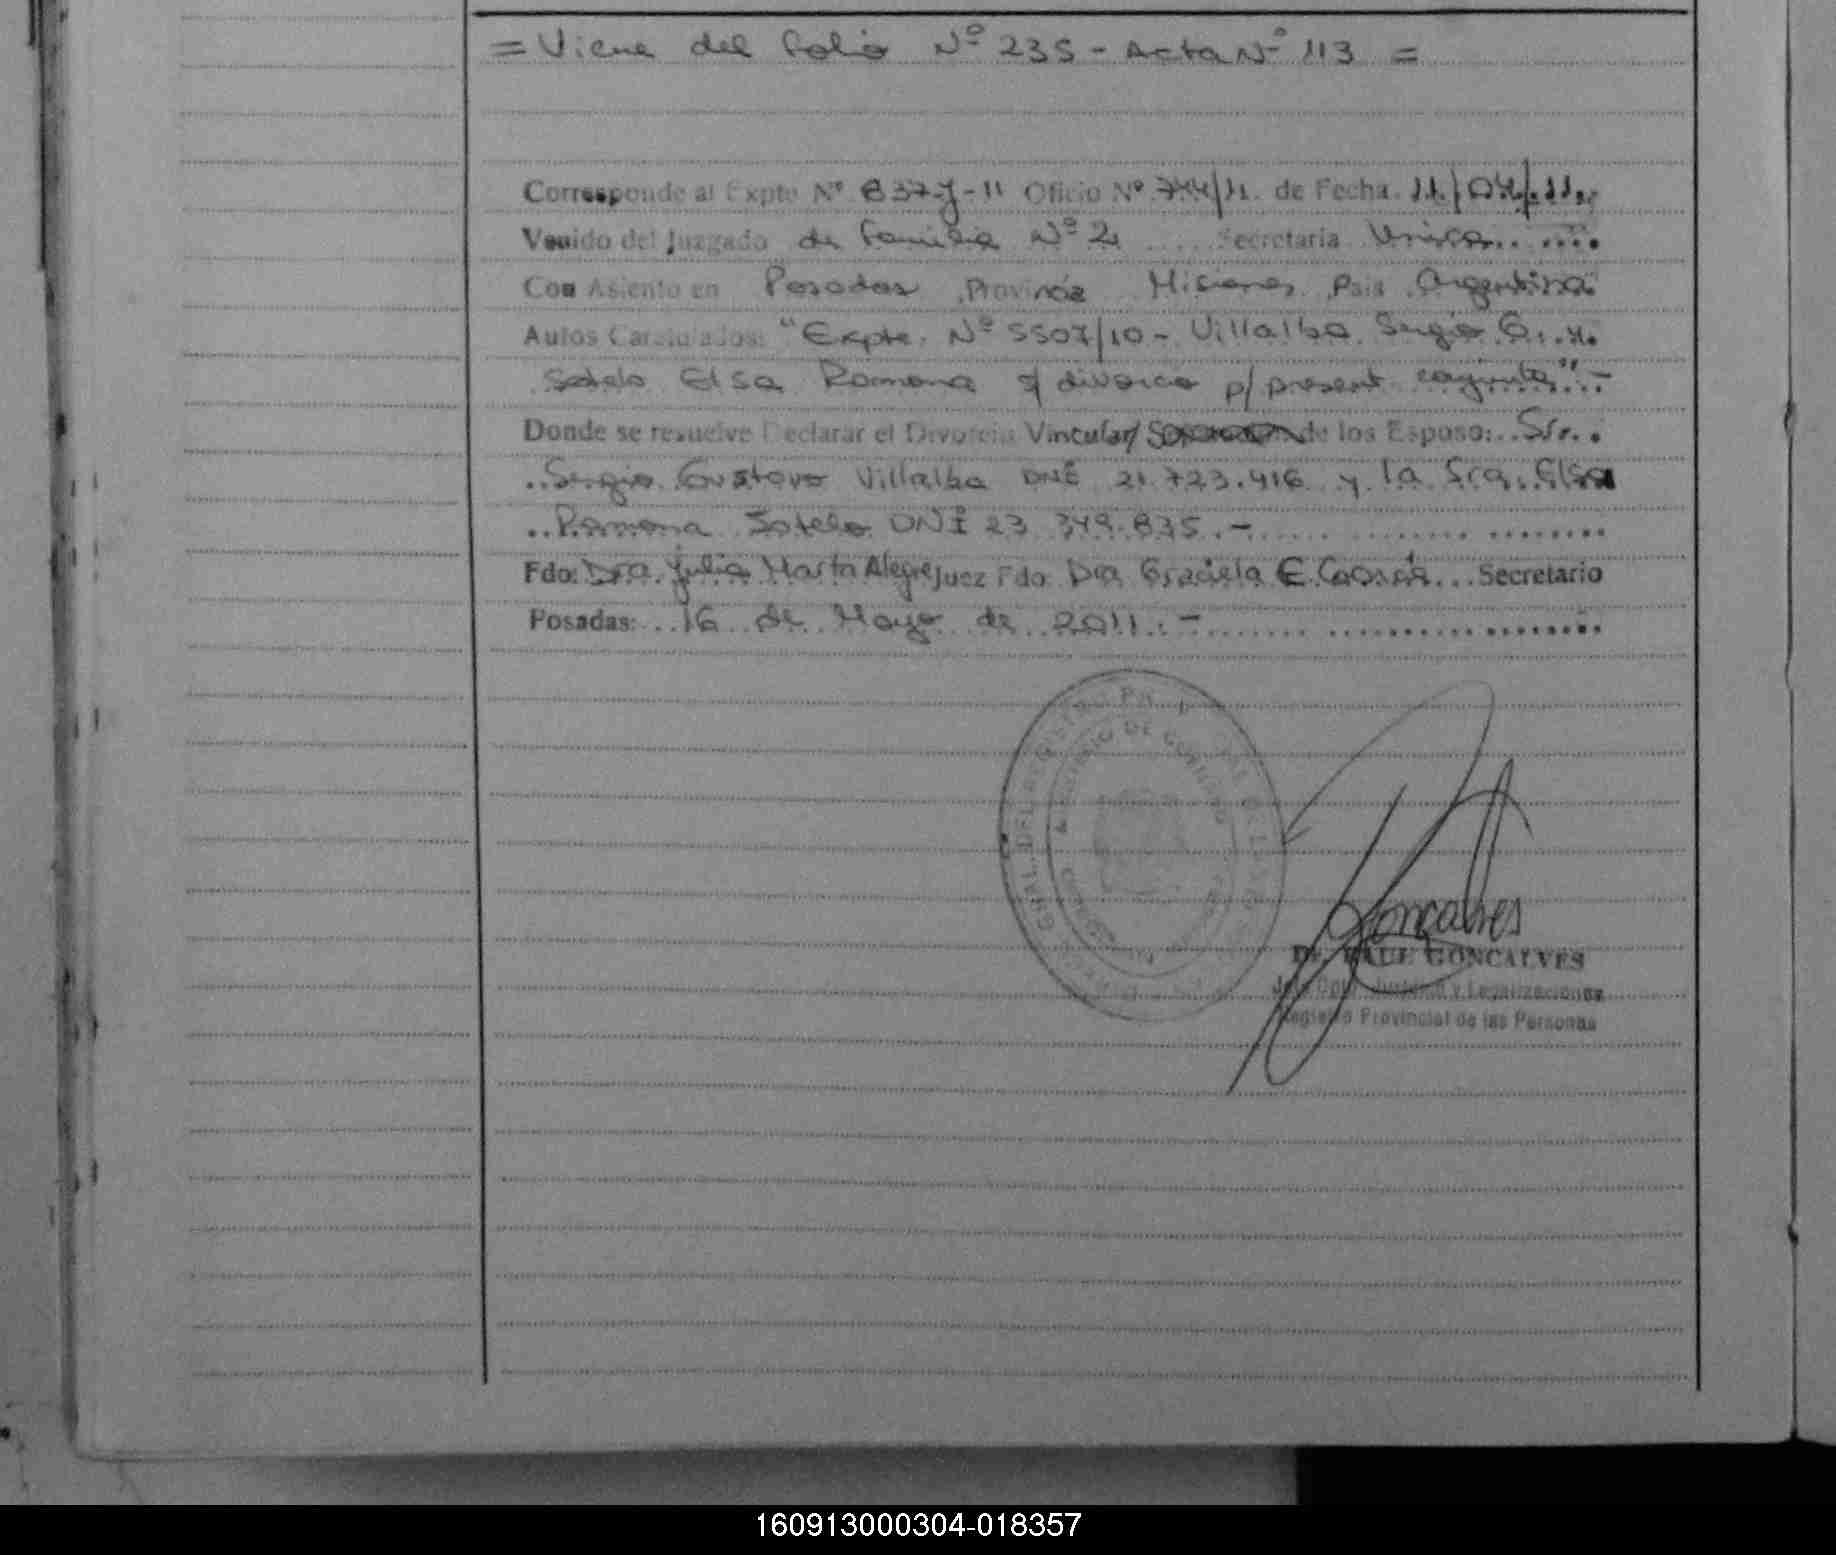 = Viene del folio Nº 235 - Acta Nº 113 =
Corresponde al Expte Nº 837-J-11 Oficio Nº 744/11. de Fecha 11/04/11.
Venido del Juzgado de familia Nº 2 Secretaria Unica
Con Asiento en Posadas Provincia Misiones Pais Argentina
Autos Caratulados: "Expte. Nº 5507/10 - Villalba Sergio G.
Sotelo Elsa Ramona s/ divorcio p/ present conjunta" -
Donde se resuelve Declarar el Divorcio Vincular/ de los Esposo: Sr.
Sergio Gustavo Villalba DNI 21.723.416 y la Sra. Elsa
Ramona Sotelo DNI 23 349.835. -
Fdo: Dra. Julia Marta Alegre Juez Fdo: Dra Graciela E. Secretario
Posadas: 16 de Mayo de 2011. -
MINISTERIO DE GOBIERNO
Goncalves
Dr. RAUL GONCALVES
Jefe Dpto. Juridico y Legalizaciones
Registro Provincial de las Personas
160913000304-018357